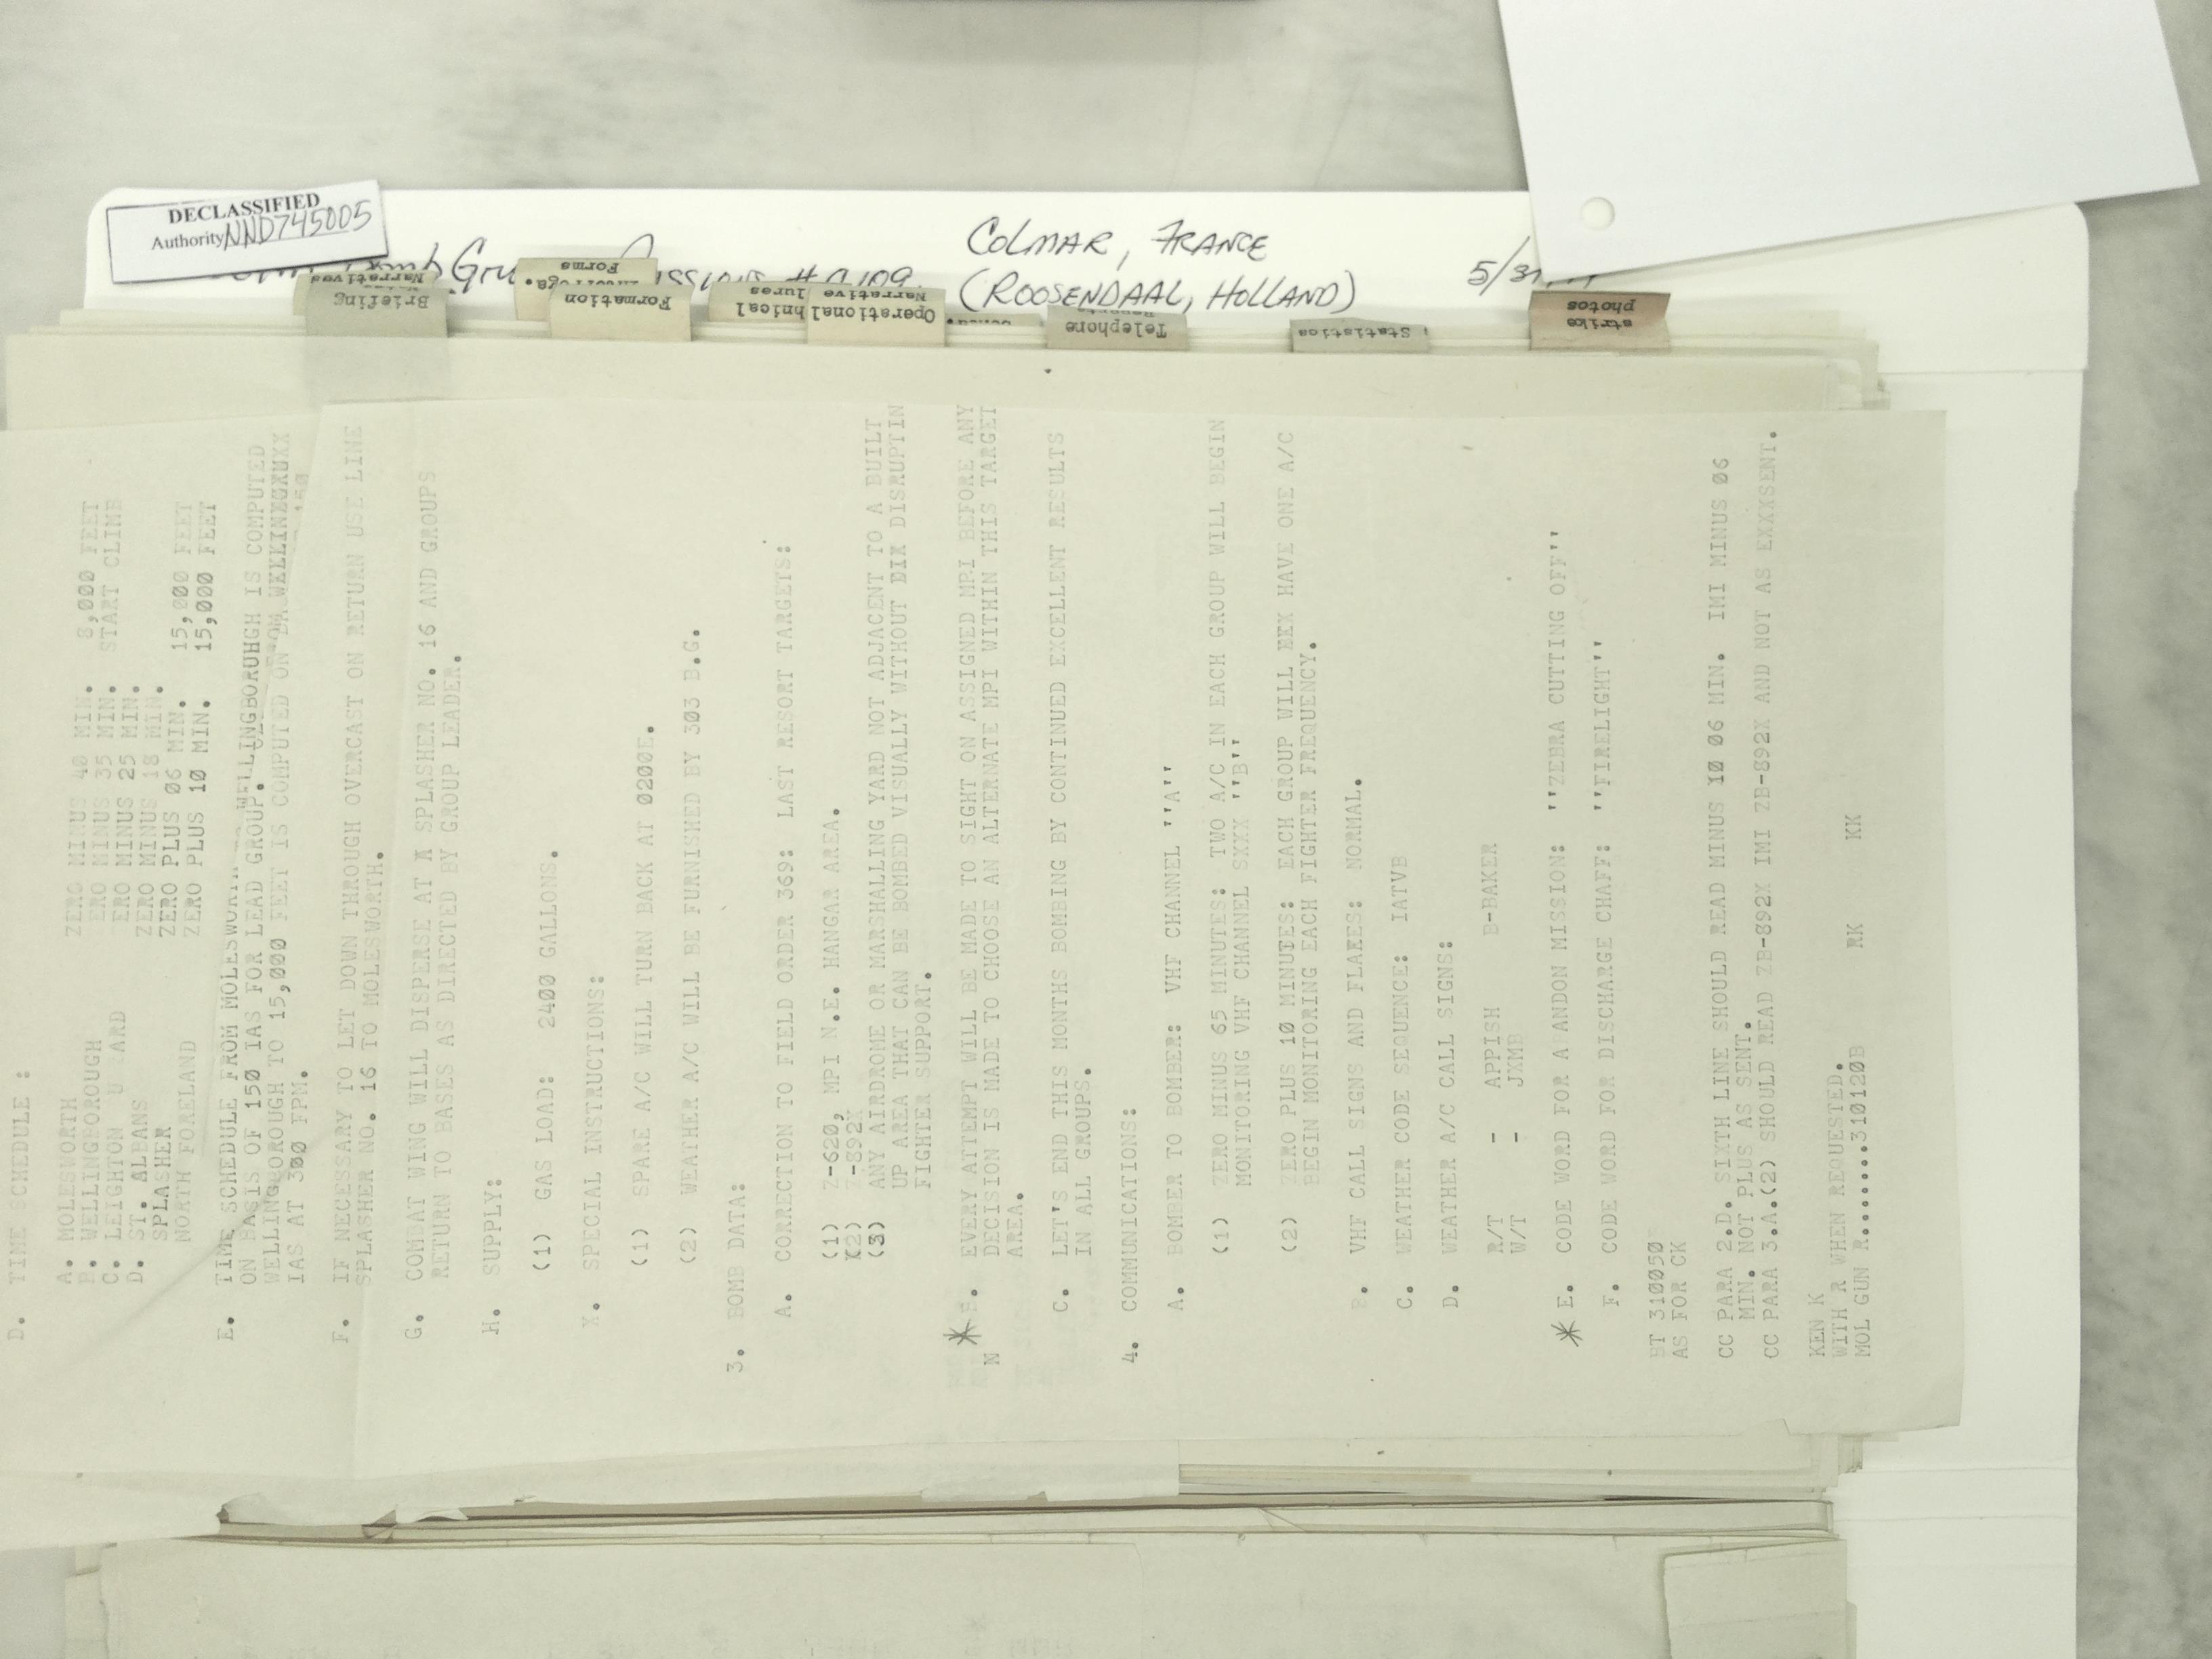 DECLASSIFIED
Authority NND745005
COLMAR, FRANCE
(ROOSENDAAL, HOLLAND)
5/31
Briefing
Narratives
Forms
Formation
Operational
Narrative
Telephone
Statistics
strike
photos
D. TIME SCHEDULE :
A. MOLESWORTH ZERO MINUS 40 MIN. 8,000 FEET
B. WELLINGBOROUGH ERO MINUS 35 MIN. START CLIMB
C. LEIGHTON U ARD ERO MINUS 25 MIN.
D. ST. ALBANS ZERO MINUS 18 MIN.
SPLASHER ZERO PLUS 06 MIN. 15,000 FEET
NORTH FORELAND ZERO PLUS 10 MIN. 15,000 FEET
E. TIME SCHEDULE FROM MOLESWORTH WELLINGBORUHGH IS COMPUTED
ON BASIS OF 150 IAS FOR LEAD GROUP.
WELLINGBOROUGH TO 15,000 FEET IS COMPUTED ON
IAS AT 300 FPM.
F. IF NECESSARY TO LET DOWN THROUGH OVERCAST ON RETURN USE LINE
SPLASHER NO. 16 TO MOLESWORTH.
G. COMBAT WING WILL DISPERSE AT X SPLASHER NO. 16 AND GROUPS
RETURN TO BASES AS DIRECTED BY GROUP LEADER.
H. SUPPLY:
(1) GAS LOAD: 2400 GALLONS.
X. SPECIAL INSTRUCTIONS:
(1) SPARE A/C WILL TURN BACK AT 0200E.
(2) WEATHER A/C WILL BE FURNISHED BY 303 B.G.
3. BOMB DATA:
A. CORRECTION TO FIELD ORDER 369: LAST RESORT TARGETS:
(1) Z-620, MPI N.E. HANGAR AREA.
X(2) Z-892X
(3) ANY AIRDROME OR MARSHALLING YARD NOT ADJACENT TO A BUILT
UP AREA THAT CAN BE BOMBED VISUALLY WITHOUT DIX DISRUPTIN
FIGHTER SUPPORT.
* B. EVERY ATTEMPT WILL BE MADE TO SIGHT ON ASSIGNED MPI BEFORE ANY
N DECISION IS MADE TO CHOOSE AN ALTERNATE MPI WITHIN THIS TARGET
AREA.
C. LET'S END THIS MONTHS BOMBING BY CONTINUED EXCELLENT RESULTS
IN ALL GROUPS.
4. COMMUNICATIONS:
A. BOMBER TO BOMBER: VHF CHANNEL ''A''
(1) ZERO MINUS 65 MINUTES: TWO A/C IN EACH GROUP WILL BEGIN
MONITORING VHF CHANNEL SXXX ''B''
(2) ZERO PLUS 10 MINUTES: EACH GROUP WILL BEX HAVE ONE A/C
BEGIN MONITORING EACH FIGHTER FREQUENCY.
B. VHF CALL SIGNS AND FLARES: NORMAL.
C. WEATHER CODE SEQUENCE: IATVB
D. WEATHER A/C CALL SIGNS:
R/T - APPISH B-BAKER
W/T - JXMB
* E. CODE WORD FOR A ANDON MISSION: ''ZEBRA CUTTING OFF''
F. CODE WORD FOR DISCHARGE CHAFF: ''FIRELIGHT''
BT 310050
AS FOR CK
CC PARA 2.D. SIXTH LINE SHOULD READ MINUS 10 06 MIN. IMI MINUS 06
MIN. NOT PLUS AS SENT.
CC PARA 3.A.(2) SHOULD READ ZB-892X IMI ZB-892X AND NOT AS EXXXSENT.
KEN K
WITH R WHEN REQUESTED.
MOL GUN R........310120B RK KK